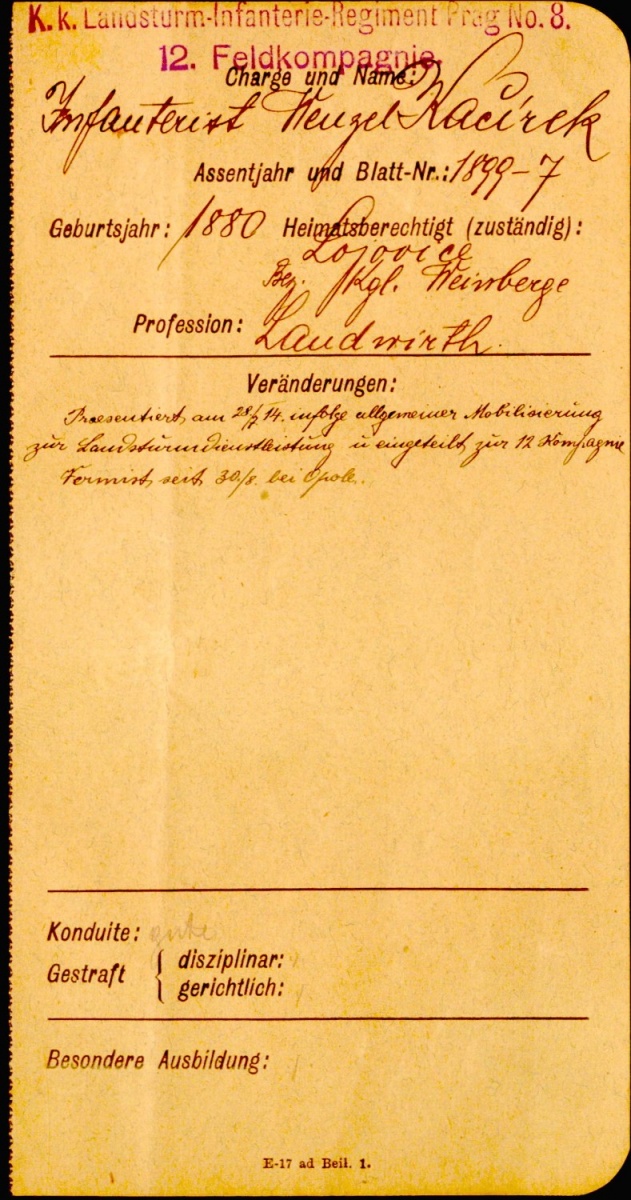 K. k. Landsturm-Infanterie-Regiment Prag No. 8.
12. Feldkompagnie.
Charge und Name:
Infanterist Wenzel Kacírek
Assentjahr und Blatt-Nr.: 1899-7
Geburtsjahr: 1880 Heimatsberechtigt (zuständig):
Lojovice
Bez. Kgl. Weinberge
Profession: Landwirth.
Veränderungen:
Praesentiert am 28/7 14. infolge allgemeiner Mobilisierung
zur Landsturmdienstleistung u eingeteilt zur 12 Kompagnie
Vermist seit 30/8. bei Opole.
Konduite: gute
Gestraft { disziplinar: /
gerichtlich: /
Besondere Ausbildung: /
E-17 ad Beil. 1.